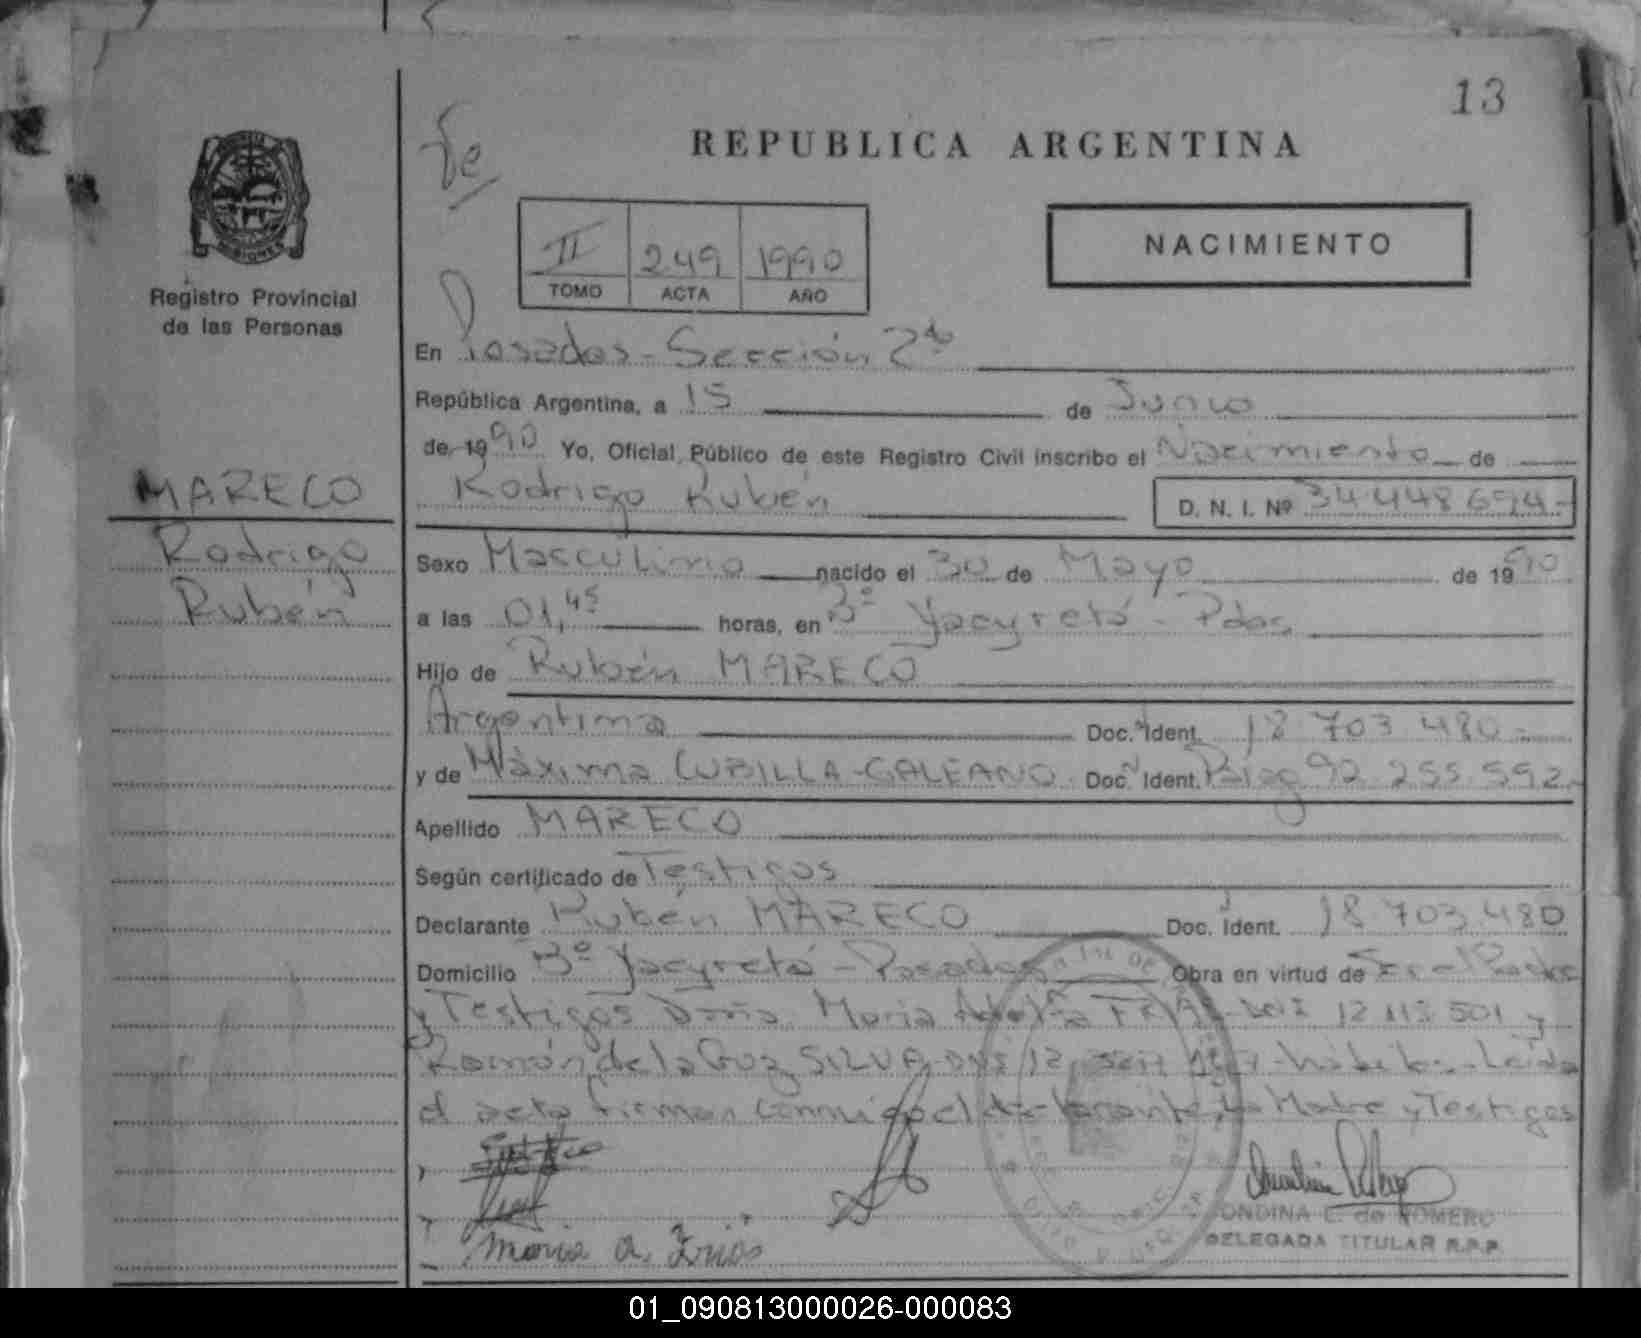 13
REPUBLICA ARGENTINA
MISIONES
Registro Provincial
de las Personas
II 249 1990
TOMO ACTA AÑO
NACIMIENTO
En Posadas - Sección 2da
República Argentina, a 15 de Junio
de 1990 Yo, Oficial Público de este Registro Civil inscribo el Nacimiento de
Rodrigo Rubén D. N. I. Nº 34.448.694.-
MARECO
Rodrigo
Rubén
Sexo Masculino nacido el 30 de Mayo de 1990
a las 01,45 horas, en Bº Yacyretá - Pdas.
Hijo de Rubén MARECO
Argentina Doc. Ident. 18.703.480.-
y de Máxima CUBILLA-GALEANO. Doc. Ident. 92.255.592.-
Apellido MARECO
Según certificado de Testigos
Declarante Rubén MARECO Doc. Ident. 18.703.480
Domicilio Bº Yacyretá - Posadas Obra en virtud de
y Testigos Doña Maria DNI 12.113.501 y
Ramón de la Cruz SILVA DNI 12 hábiles. Leída
el acta firman conmigo el declarante, la Madre y Testigos
Maria A. Frias
ONDINA E. de ROMERO
DELEGADA TITULAR R.P.P.
01_090813000026-000083